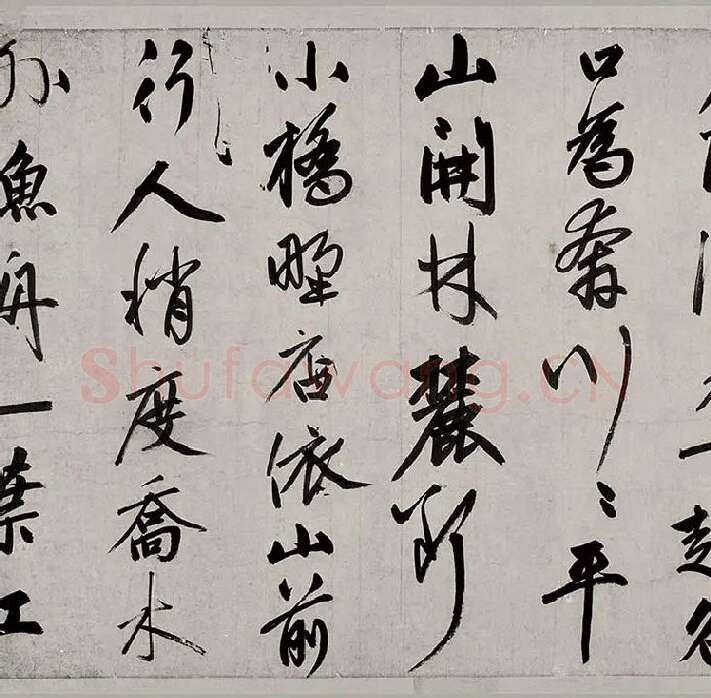 下赴谷
口為奔川〻平
山開林麓斷
小橋野店依山前
行人稍度喬木
外魚舟一葉江
Shufawang.CN